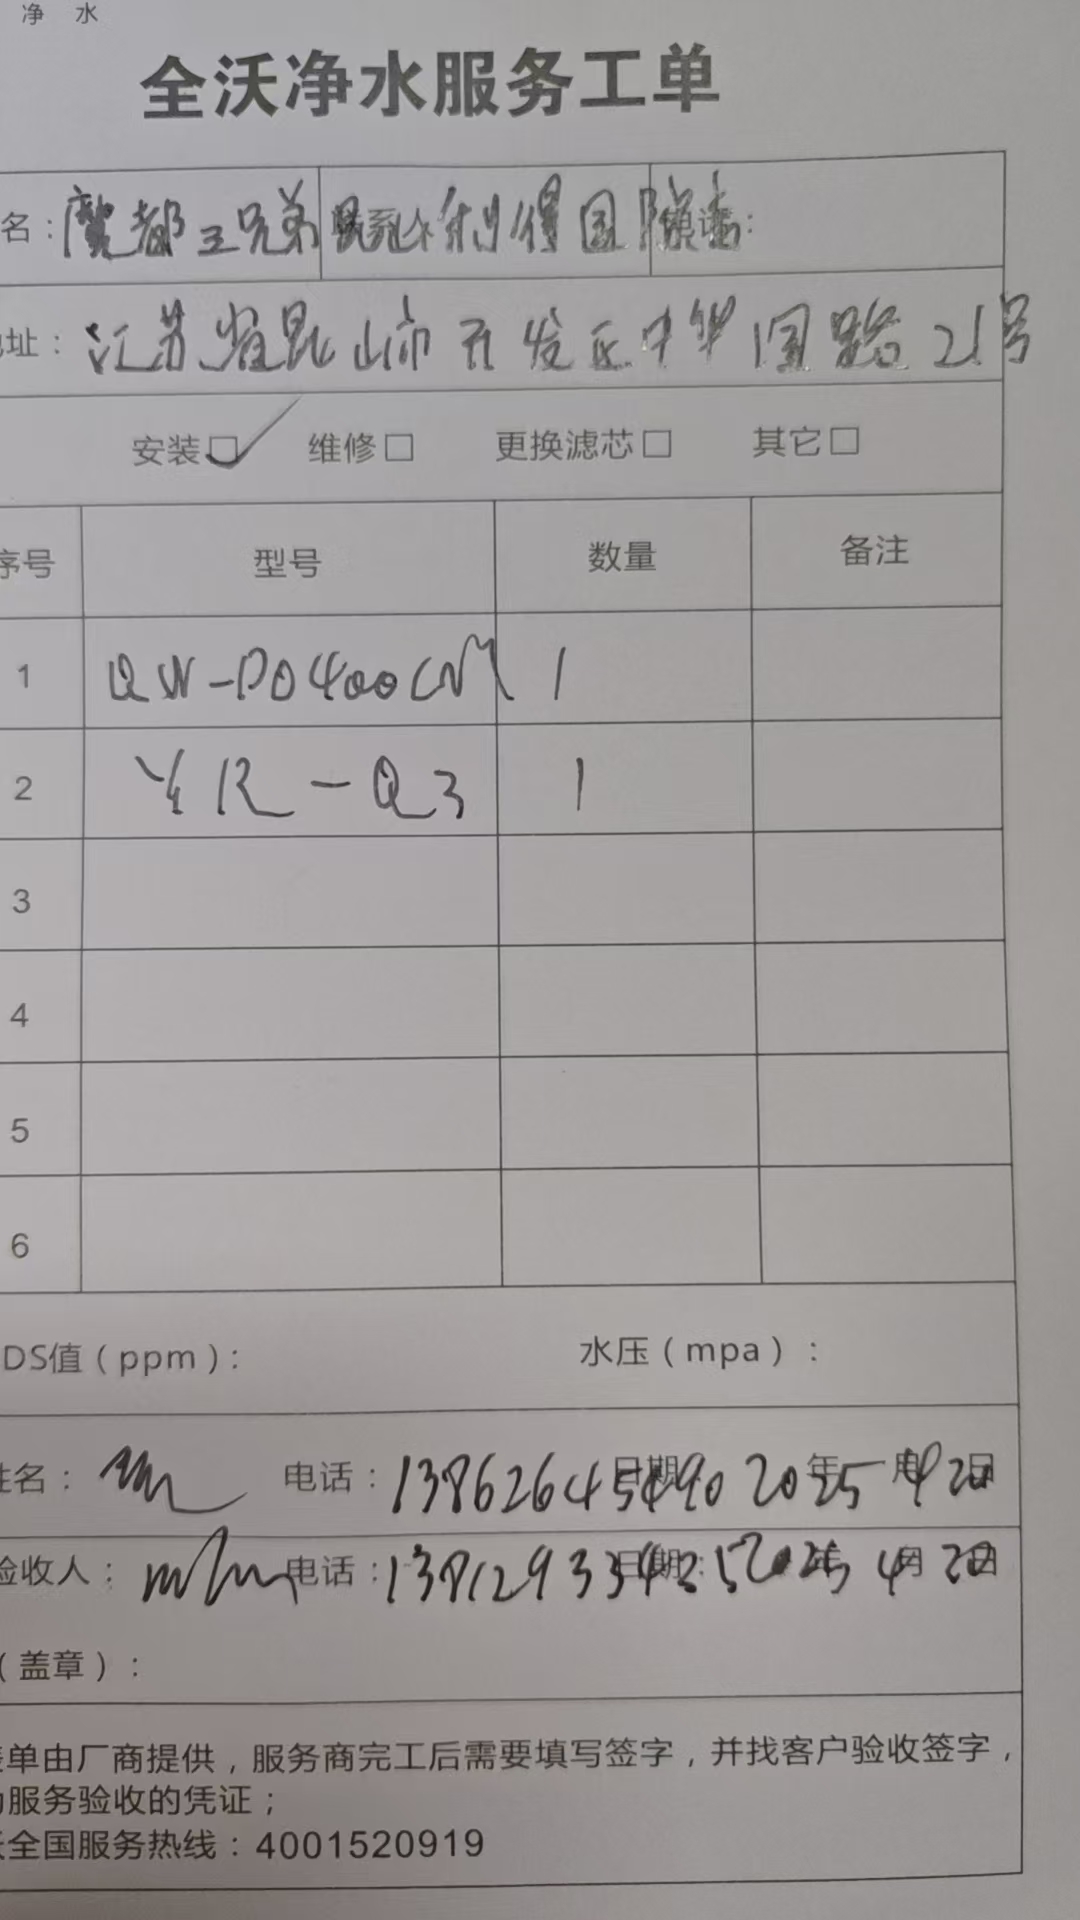 净 水
全沃净水服务工单
名：魔都三兄弟 联系人 利得国际 电话：
址：江苏省昆山市开发区中华园路21号
安装☑ 维修□ 更换滤芯□ 其它□
序号 型号 数量 备注
1 QW-DO400CM 1
2 YR-Q3 1
3
4
5
6
DS值（ppm）： 水压（mpa）：
姓名： 电话： 日期： 2025年4月20日
验收人： 电话： 日期： 2025年4月20日
（盖章）：
单由厂商提供，服务商完工后需要填写签字，并找客户验收签字，
服务验收的凭证；
全国服务热线：4001520919